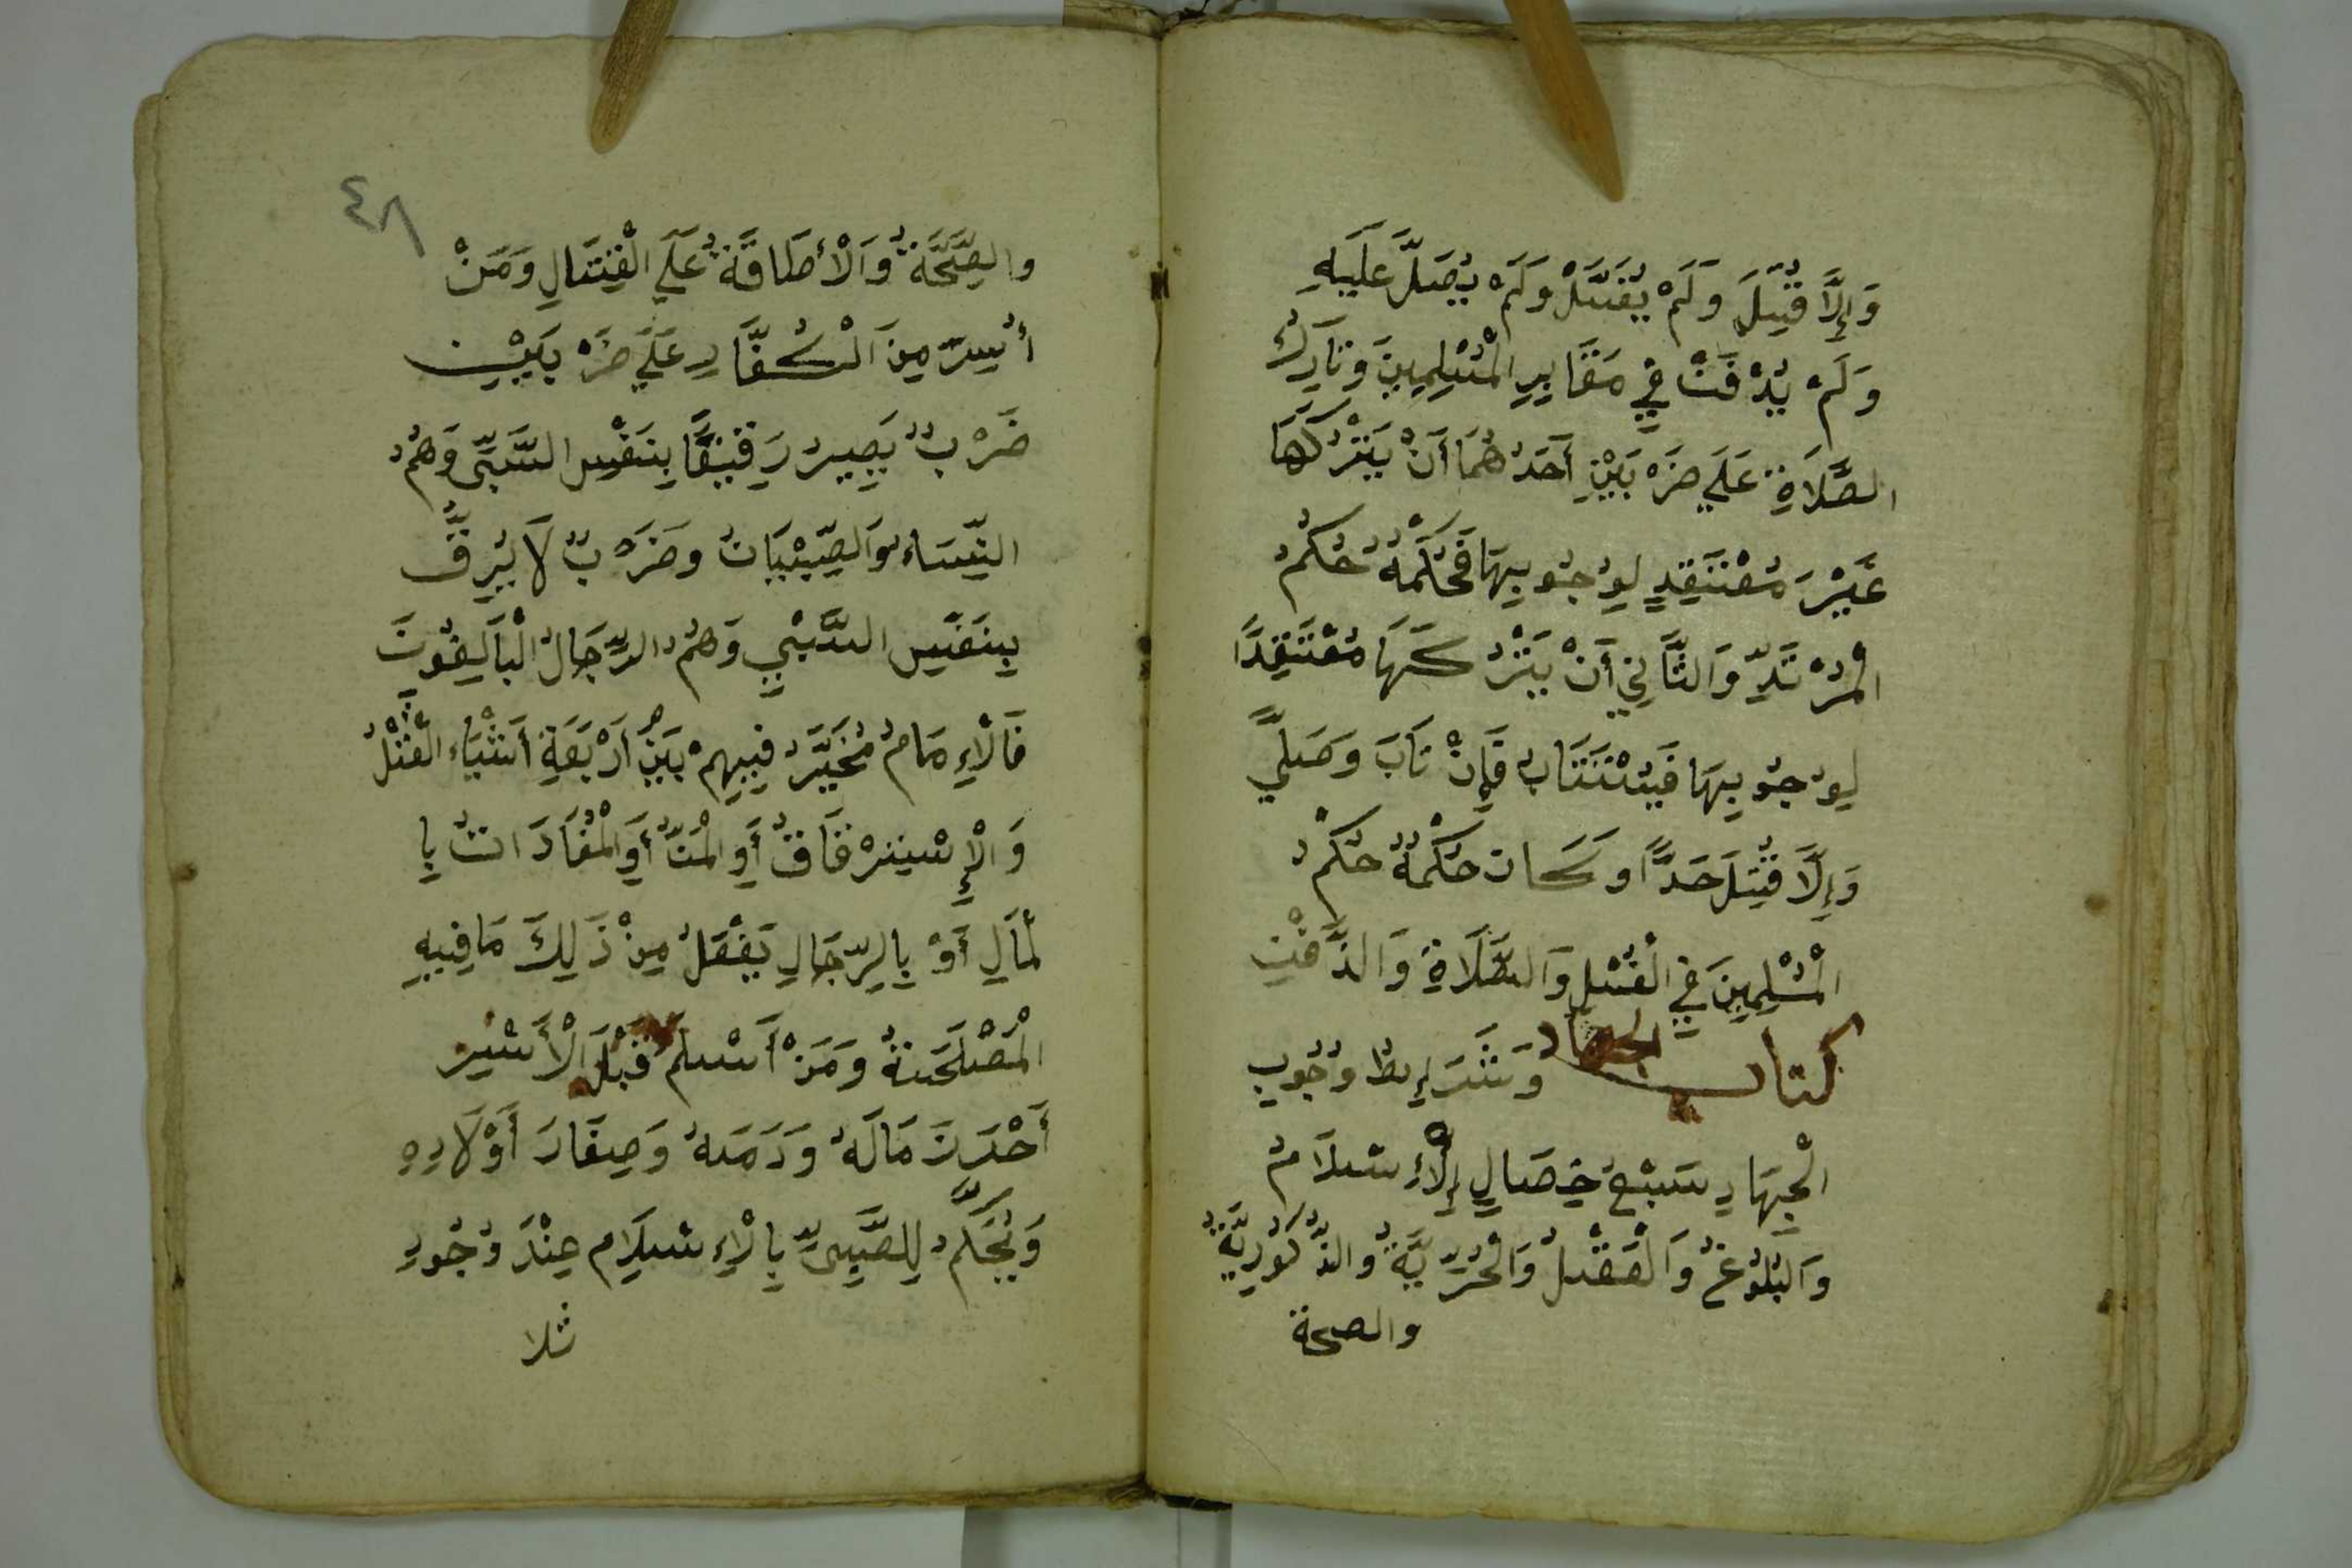 وَإِلَّا قُتِلَ وَلَمْ يُغَسَّلْ وَلَمْ يُصَلَّ عَلَيهِ
وَلَمْ يُدْفَنْ فِي مَقَابِرِ الْمُسْلِمِينَ وَتَارِكُ
الصَّلَاةِ عَلَي ضَرْبَيْنِ أَحَدُهُمَا أَنْ يَتْرُكَهَا
غَيْرَ مُعْتَقِدٍ لِوُجُوبِهَا فَحُكْمُهُ حُكْمُ
الْمُرْتَدِّ وَالثَّانِي أَنْ يَتْرُكَهَا مُعْتَقِدًا
لِوُجُوبِهَا فَيُسْتَتَابُ فَإِنْ تَابَ وَصَلَّي
وَإِلَّا قُتِلَ حَدًّا وَكَانَ حُكْمُهُ حُكْمُ
الْمُسْلِمِينَ فِي الْغُسْلِ وَالصَّلَاةِ وَالدَّفْنِ
كتاب الجهاد وَشَرَايِطُ وُجُوبِ
الْجِهَادِ سَبْعُ خِصَالٍ إِلْإِسْلَامُ
وَالْبُلُوغُ وَالْعَقْلُ وَالْحُرِّيَّةُ وَالذُّكُورِيَّةُ
والصحة
٤٨
والصِّحَّةُ وَالْأطَاقَةُ عَلَي الْقِتَالِ وَمَنْ
أُسِرَ مِنَ الْكُفَّارِ عَلَي ضَرْبَيْنِ
ضَرْبٌ يَصِيرُ رَقِيقًا بِنَفْسِ السَّبْيِ وَهُمُ
النِّسَاءُ وَالصِّبْيَانُ وَضَرْبٌ لَا يُرِقُّ
بِنَفْسِ السَّبْيِ وَهُمُ الرِّجَالُ الْبَالِغُونَ
فَالْإِمَامُ مُخَيَّرٌ فِيهِمْ بَيْنَ أَرْبَعَةِ أَشْيَاءَ الْقَتْلُ
وَالْإِسْتِرْقَاقُ أَوِ الْمَنُّ أَوِ الْمُفَادَاتُ بِا
لْمَالِ أَوْ بِالرِّجَالِ يَفْعَلُ مِنْ ذَلِكَ مَا فِيهِ
الْمَصْلَحَةُ وَمَنْ أَسْلَمَ قَبْلَ الْأَسْيرِ
أَحْرَزَ مَالَهُ وَدَمَهُ وَصِغَارَ أَوْلَادِهِ
وَيُحْكَمُ لِلصَّبِيِّ بِالْإِسْلَامِ عِنْدَ وُجُودِ
ثلا